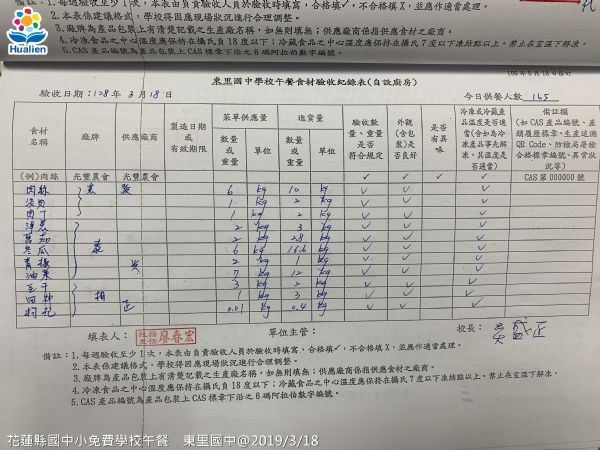 Hualien
備註：1.每週驗收至少1次，本表由負責驗收人員於驗收時填寫，合格填✓，不合格填X，並應作適當處理。
2.本表係建議格式，學校得因應現場狀況進行合理調整。
3.廠牌為產品包裝上有清楚記載之生產廠名稱，如無則填無；供應廠商係指供應食材之廠商。
4.冷凍食品之中心溫度應保持在攝氏負18度以下；冷藏食品之中心溫度應保持在攝氏7度以下凍結點以上。禁止在室溫下解凍。
5.CAS產品編號為產品包裝上CAS標章下沿之6碼阿拉伯數字編號。
東里國中學校午餐食材驗收紀錄表(自設廚房)
驗收日期：108年3月18日
今日供餐人數 165
食材名稱 廠牌 供應廠商 製造日期或有效期限 菜單供應量 進貨量 驗收數量、重量是否符合規定 外觀(含包裝)是否良好 是否有異味 冷凍或冷藏產品溫度是否適當(含如為冷凍產品事先解凍，其溫度是否適當) 備註欄(如CAS產品編號、產銷履歷標章、生產追溯QR Code、防檢局屠檢合格標章編號、異常狀況等)
數量或重量 單位 數量或重量 單位
(例)肉絲 光豐農會 光豐農會 ✓ ✓ ✓ ✓ CAS第000000號
肉絲 6 kg 10 kg ✓ ✓ ✓
1 kg 2 kg ✓ ✓ ✓
肉丁 1 kg 2 kg ✓ ✓ ✓
洋蔥 2 kg 3 kg ✓ ✓
2 kg 2.8 kg ✓ ✓
冬瓜 6 kg 16.6 kg ✓ ✓
2 kg 1 kg ✓ ✓
油菜 7 kg 12 kg ✓ ✓
豆干 3 kg 2 kg ✓ ✓
1 kg 3 kg ✓ ✓
0.01 kg 0.4 kg ✓ ✓
填表人： 廖春宏
單位主管：
校長：
備註：1.每週驗收至少1次，本表由負責驗收人員於驗收時填寫，合格填✓，不合格填X，並應作適當處理。
2.本表係建議格式，學校得因應現場狀況進行合理調整。
3.廠牌為產品包裝上有清楚記載之生產廠名稱，如無則填無；供應廠商係指供應食材之廠商。
4.冷凍食品之中心溫度應保持在攝氏負18度以下；冷藏食品之中心溫度應保持在攝氏7度以下凍結點以上。禁止在室溫下解凍。
5.CAS產品編號為產品包裝上CAS標章下沿之6碼阿拉伯數字編號。
花蓮縣國中小免費學校午餐 東里國中@2019/3/18